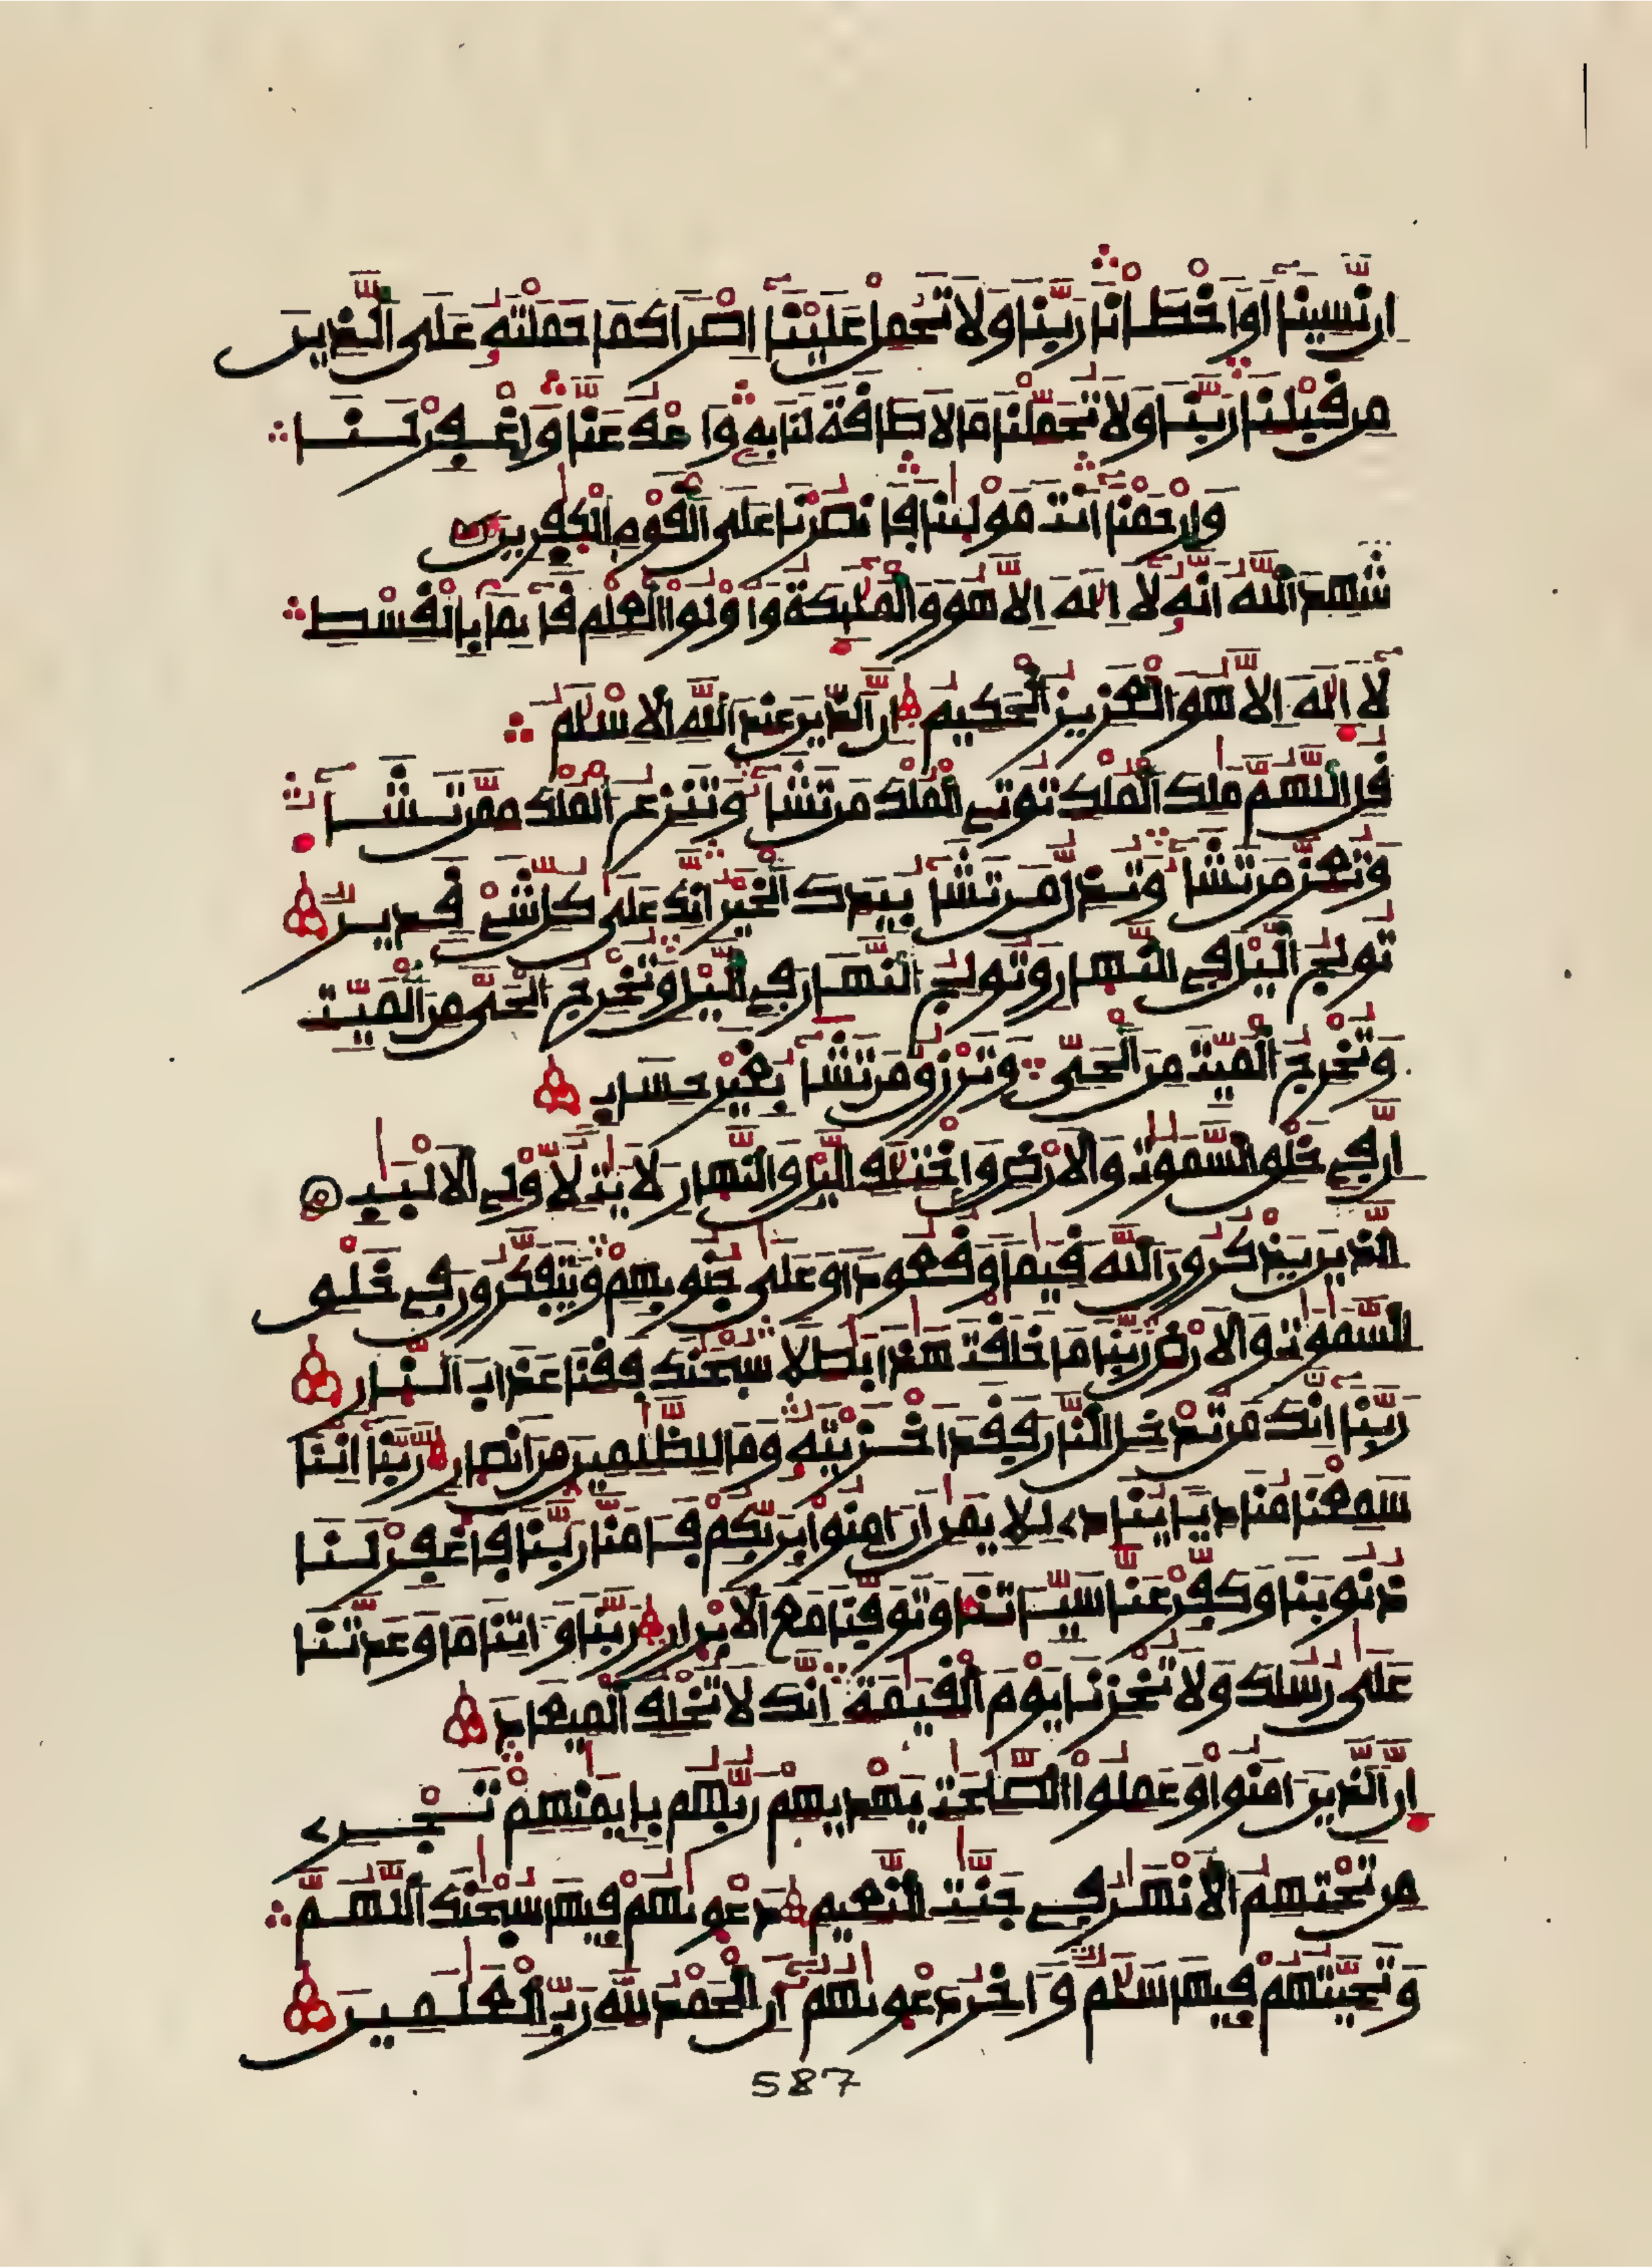 ان نسينا أو أخطأنا ربنا ولا تحمل علينا إصرا كما حملته على الذين
من قبلنا ربنا ولا تحملنا ما لا طاقة لنا به واعف عنا واغفر لنا
وارحمنا أنت مولينا فانصرنا على القوم الكفرين
شهد الله أنه لا إله إلا هو والمليكة وأولوا العلم قائما بالقسط
لا إله إلا هو العزيز الحكيم إن الدين عند الله الإسلم
قل اللهم ملك الملك توتي الملك من تشاء وتنزع الملك ممن تشاء
وتعز من تشاء وتذل من تشاء بيدك الخير إنك على كل شيء قدير
تولج اليل في النهار وتولج النهار في اليل وتخرج الحي من الميت
وتخرج الميت من الحي وترزق من تشاء بغير حساب
إن في خلق السموت والأرض واختلف اليل والنهار لأيت لأولي الألبب
الذين يذكرون الله قيما وقعودا وعلى جنوبهم ويتفكرون في خلق
السموت والأرض ربنا ما خلقت هذا بطلا سبحنك فقنا عذاب النار
ربنا إنك من تدخل النار فقد أخزيته وما للظلمين من أنصار ربنا إننا
سمعنا مناديا ينادي للإيمن أن امنوا بربكم فامنا ربنا فاغفر لنا
ذنوبنا وكفر عنا سيئاتنا وتوفنا مع الأبرار ربنا واتنا ما وعدتنا
على رسلك ولا تخزنا يوم القيمة إنك لا تخلف الميعاد
إن الذين امنوا وعملوا الصلحت يهديهم ربهم بإيمنهم تجري
من تحتهم الأنهر في جنت النعيم دعويهم فيها سبحنك اللهم
وتحيتهم فيها سلم واخر دعويهم أن الحمد لله رب العلمين
587